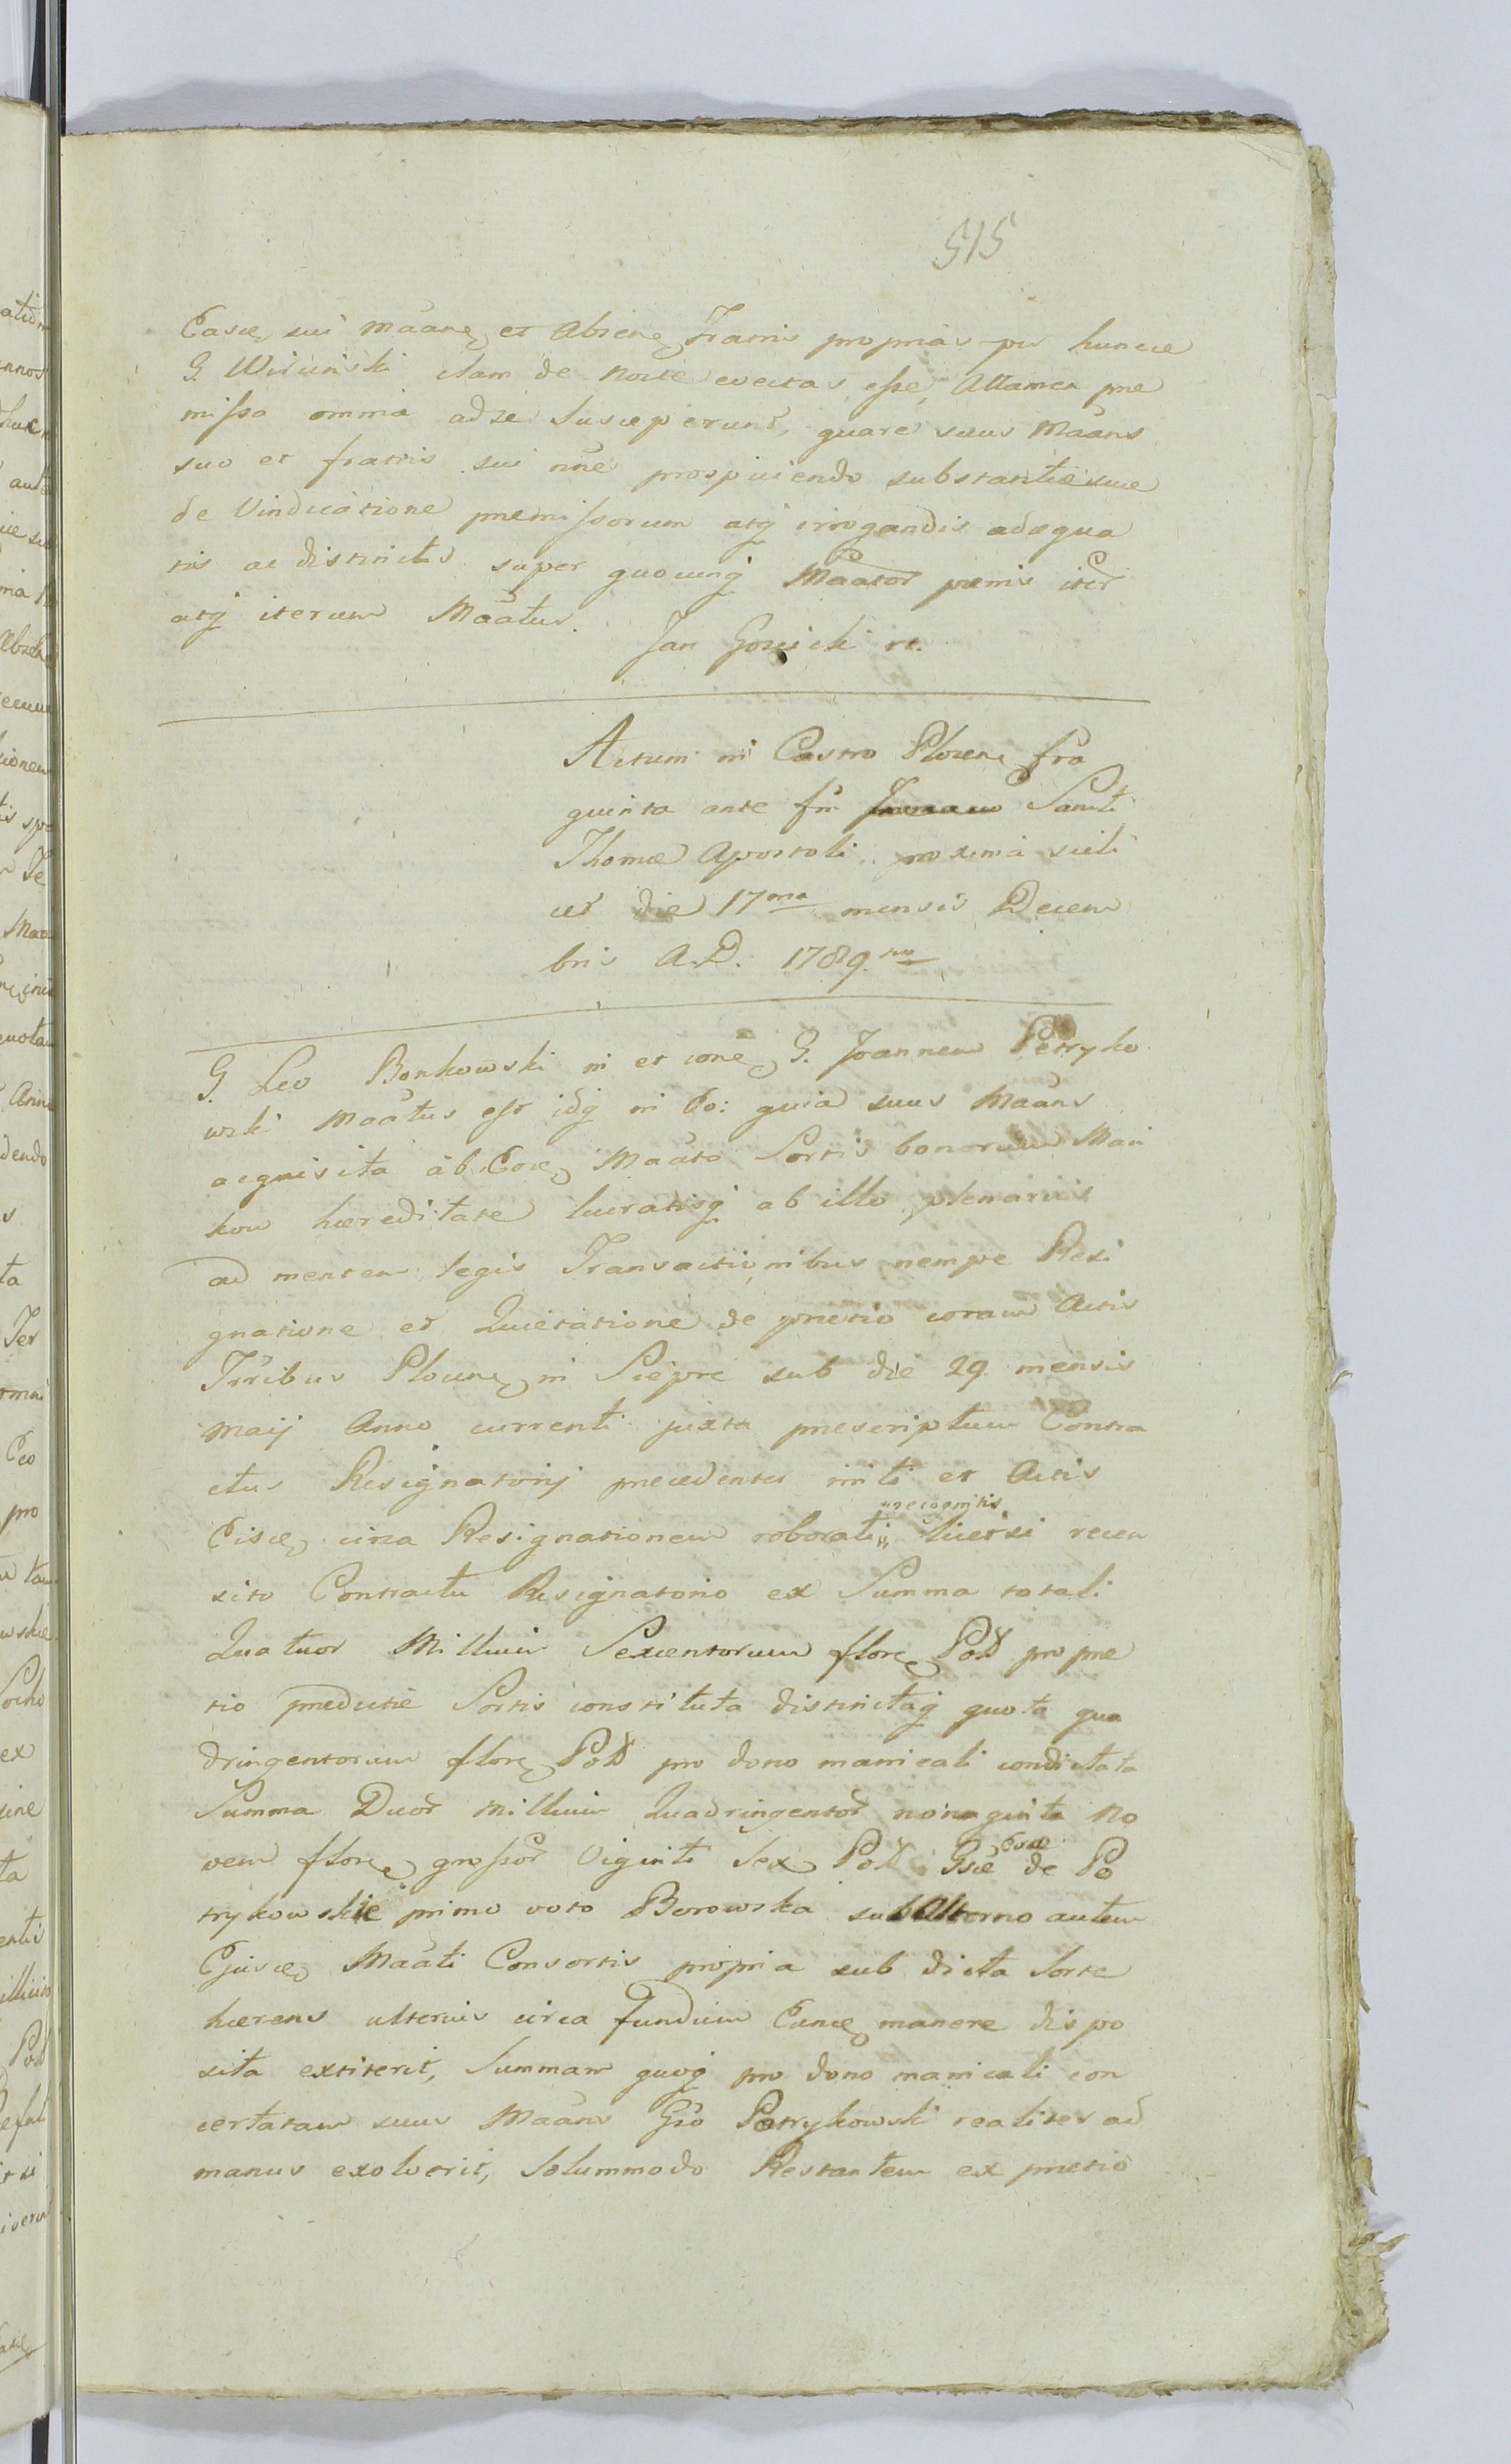 515
Easce sui Maanc et Absenc Fratris proprias per hunce
G. Wiliński clam de nocte evectas esse, Attamen pre
misso omnia ad se susceperunt, quare suus Maans
suo et fratris sui nne prospiciendo substantie sue
de Vindicatione premissorum atq irrogandis adequa
tis ac districtis super quocunq Maator penis iter
atq iterum Maatus.
Jan Gosicki
Actum in Castro Plocen fra
quinta ante fm Sancti
Thomæ Apostoli proxima scili
cet die 17ma mensis Decem
bris A.D. 1789no
G. Leo Bonkowski in et cone G. Joannem Petryko
wski Maatus est idq in Eo: quia suus Maans
acquisita ab Eoce Maato Sortis bonorum Mari
kow hæreditate lucratisq ab illo plenariis
ad mentem legis Transactionibus nempe Resi
gnatione et Quietatione de pretio coram Actis
Trribus Plocen in Sieprc sub die 29 mensis
Maij Anno currenti juxta prescriptum Contra
ctus Resignatorij precedenter initi et Actis
Eisce circa Resignationem roborati
precognitis
licet si recen
sito Contractu Resignatorio ex Summa totali
Quatuor Millium Sexcentorum flore Pol pro pre
tio predicte Sortis constituta districtaq quota qua
dringentorum flore Pol pro dono manicali condictata
Summa Duor Millium Quadringentor nonaginta no
vem flore grossor Viginti Sex Pol Gsæ de Po
trykowskie primo voto Borowska sub Alterno autem
Ejusce Maati Consortis propria sub dicta Sorte
hærens ulterius circa fundum Eunce manere dispo
sita extiterit, Summam quoq pro dono manicali con
certatam suus Maans Gso Potrykowski realiter ad
manus exolverit, Solummodo Restantem ex pretio